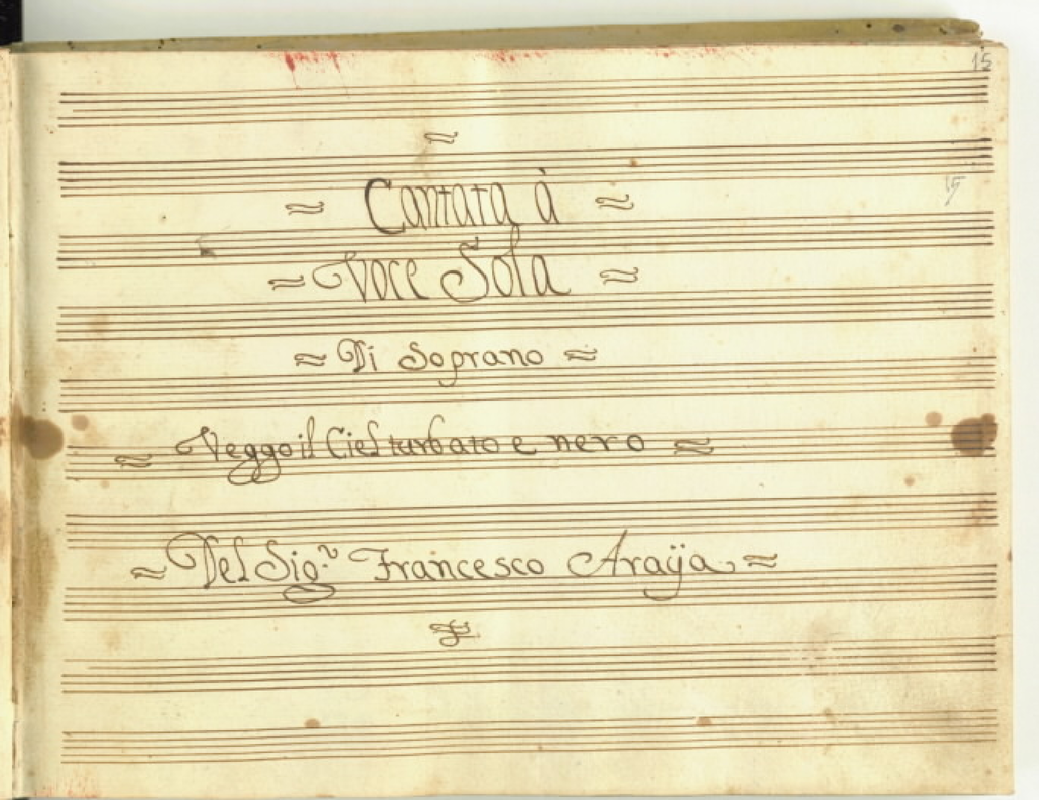 15
15
Cantata à
Voce Sola
Di Soprano
Veggo il Ciel turbato e nero
Del Sig.r Francesco Araÿa